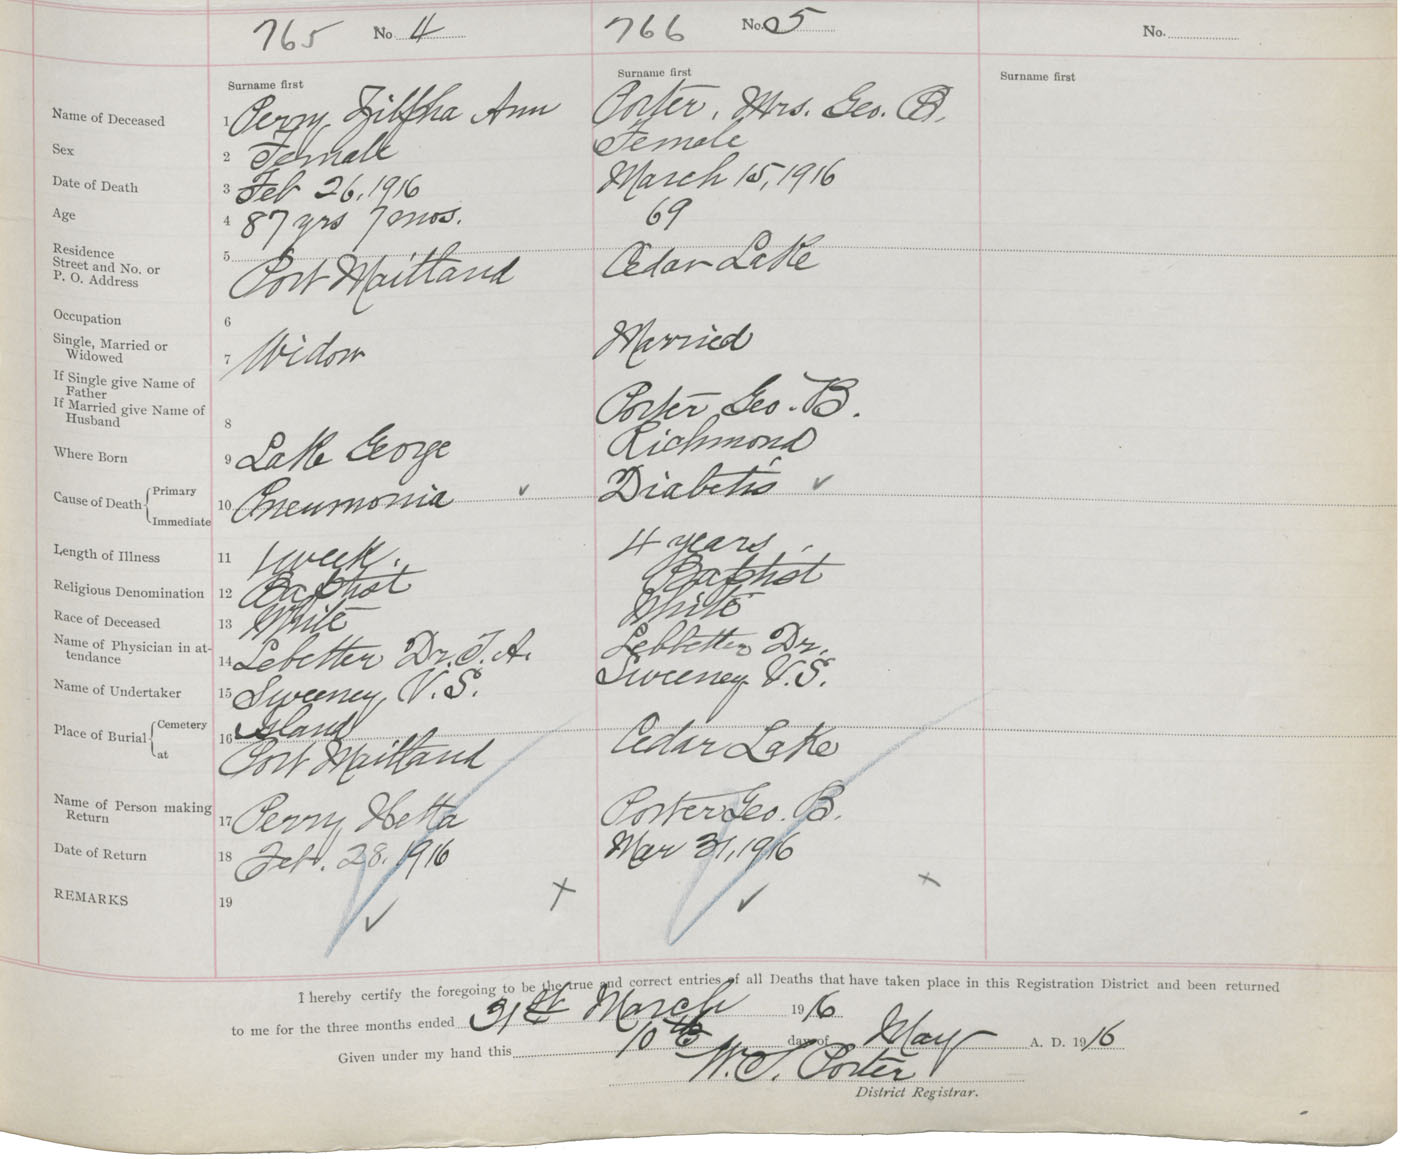 765 No 4 766 No. 5 No.
Surname first Surname first Surname first
Name of Deceased 1 Perry Zilpha Ann Porter, Mrs. Geo. B.
Sex 2 Female Female
Date of Death 3 Feb 26, 1916 March 15, 1916
Age 4 87 yrs 7 mos. 69
Residence 5
Street and No. or
P. O. Address Port Maitland Cedar Lake
Occupation 6
Single, Married or
Widowed 7 Widow Married
If Single give Name of
Father
If Married give Name of
Husband 8 Porter Geo. B.
Where Born 9 Lake George Richmond
Cause of Death { Primary
Immediate 10 Pneumonia ✓ Diabetis ✓
Length of Illness 11 1 week. 4 years
Religious Denomination 12 Baptist Baptist
Race of Deceased 13 White White
Name of Physician in at-
tendance 14 Lebetter Dr. T. A. Lebbetter Dr.
Name of Undertaker 15 Sweeney V. S. Sweeney V. S.
Place of Burial { Cemetery
at 16 Island
Port Maitland Cedar Lake
Name of Person making
Return 17 Perry Hetta Porter Geo. B.
Date of Return 18 Feb. 28, 1916 Mar 31, 1916
REMARKS 19 ✓ x ✓ x
I hereby certify the foregoing to be the true and correct entries of all Deaths that have taken place in this Registration District and been returned
to me for the three months ended 31st March 1916
Given under my hand this 10th day of May A. D. 1916
W. S. Porter
District Registrar.